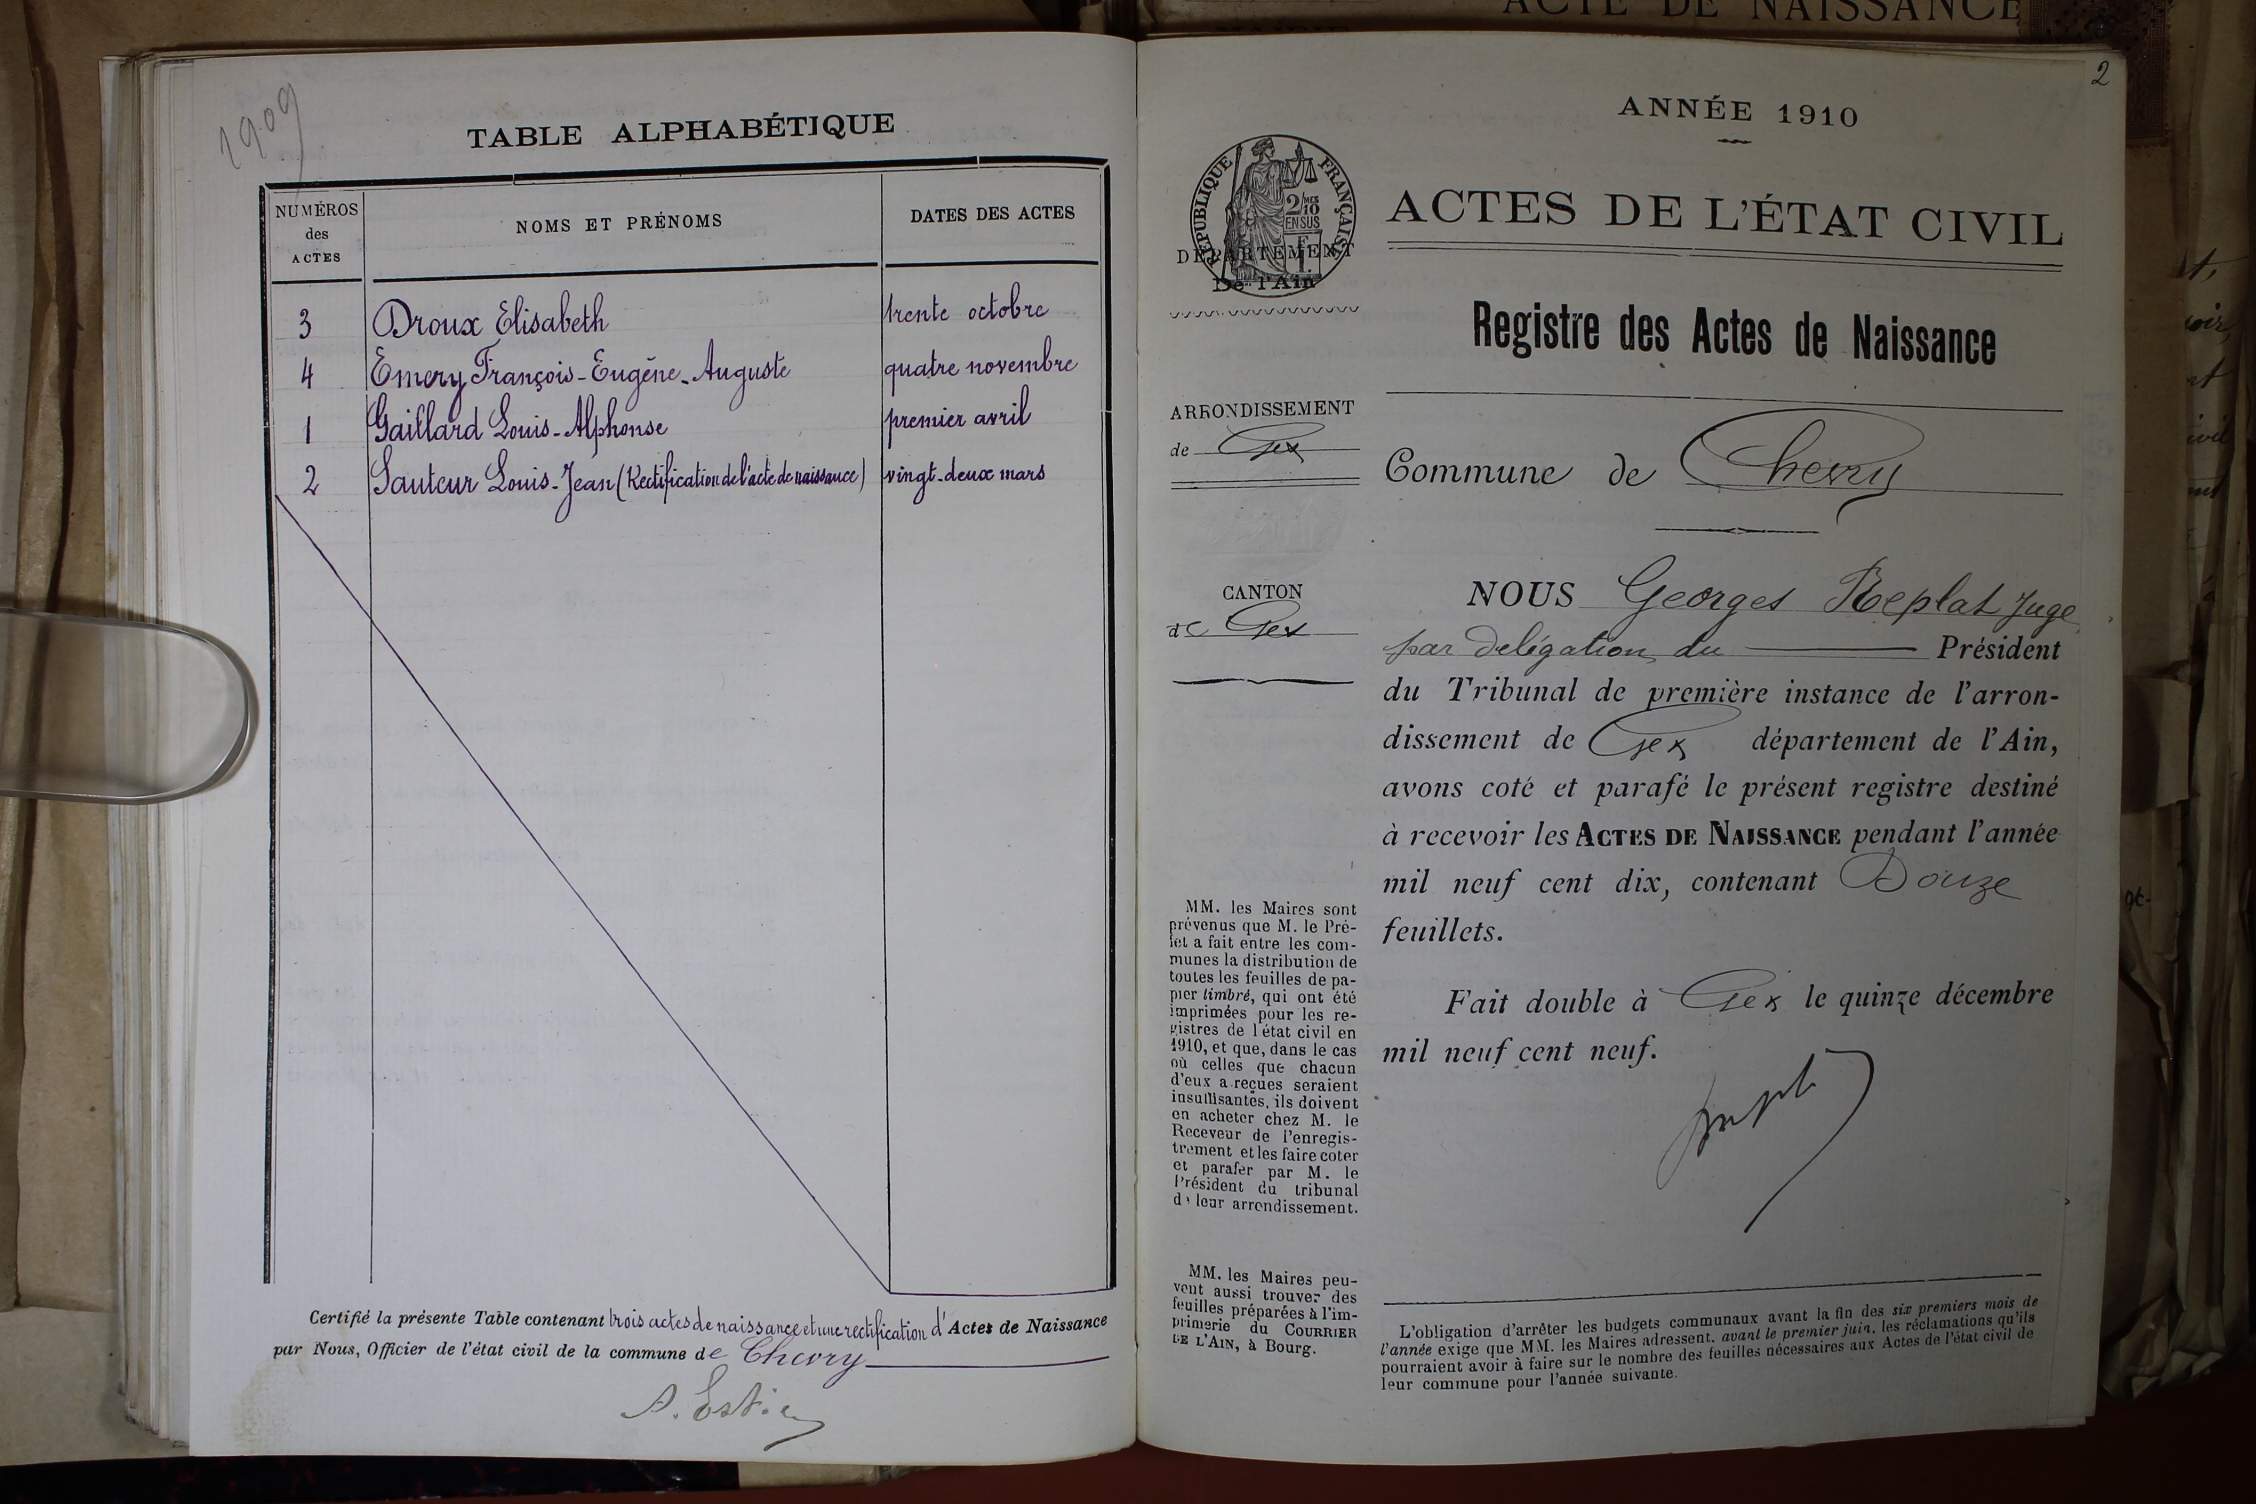 ACTE DE NAISSANCE
1909
TABLE ALPHABÉTIQUE
NUMÉROS
des
ACTES
NOMS ET PRÉNOMS
DATES DES ACTES
3 Droux Elisabeth trente octobre
4 Emery François-Eugène-Auguste quatre novembre
1 Gaillard Louis-Alphonse premier avril
2 Sauteur Louis-Jean (Rectification de l'acte de naissance) vingt-deux mars
Certifié la présente Table contenant trois actes de naissance et une rectification d'Actes de Naissance
par Nous, Officier de l'état civil de la commune de Chevry
2
ANNÉE 1910
RÉPUBLIQUE FRANÇAISE
2/10
MES
EN SUS
DÉPARTEMENT
De l'Ain
ACTES DE L'ÉTAT CIVIL
Registre des Actes de Naissance
ARRONDISSEMENT
de Gex
Commune de Chevry
CANTON
de Gex
NOUS Georges Replat Juge
par délégation du Président
du Tribunal de première instance de l'arron-
dissement de Gex département de l'Ain,
avons coté et parafé le présent registre destiné
à recevoir les ACTES DE NAISSANCE pendant l'année
mil neuf cent dix, contenant Douze
feuillets.
Fait double à Gex le quinze décembre
mil neuf cent neuf.
MM. les Maires sont
prévenus que M. le Pré-
fet a fait entre les com-
munes la distribution de
toutes les feuilles de pa-
pier timbré, qui ont été
imprimées pour les re-
gistres de l'état civil en
1910, et que, dans le cas
où celles que chacun
d'eux a reçues seraient
insuffisantes, ils doivent
en acheter chez M. le
Receveur de l'enregis-
trement et les faire coter
et parafer par M. le
Président du tribunal
de leur arrondissement.
MM. les Maires peu-
vent aussi trouver des
feuilles préparées à l'im-
primerie du COURRIER
DE L'AIN, à Bourg.
L'obligation d'arrêter les budgets communaux avant la fin des six premiers mois de
l'année exige que MM. les Maires adressent, avant le premier juin, les réclamations qu'ils
pourraient avoir à faire sur le nombre des feuilles nécessaires aux Actes de l'état civil de
leur commune pour l'année suivante.